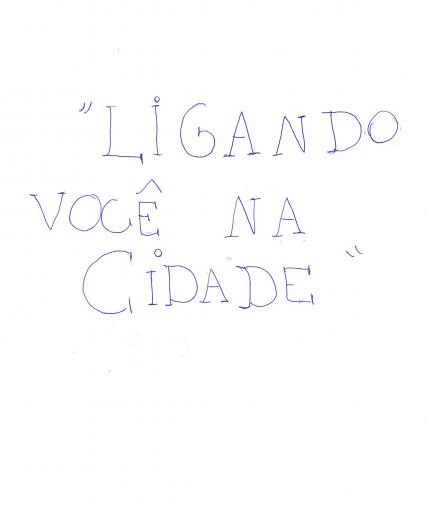 "LIGANDO
VOCÊ NA
CIDADE"